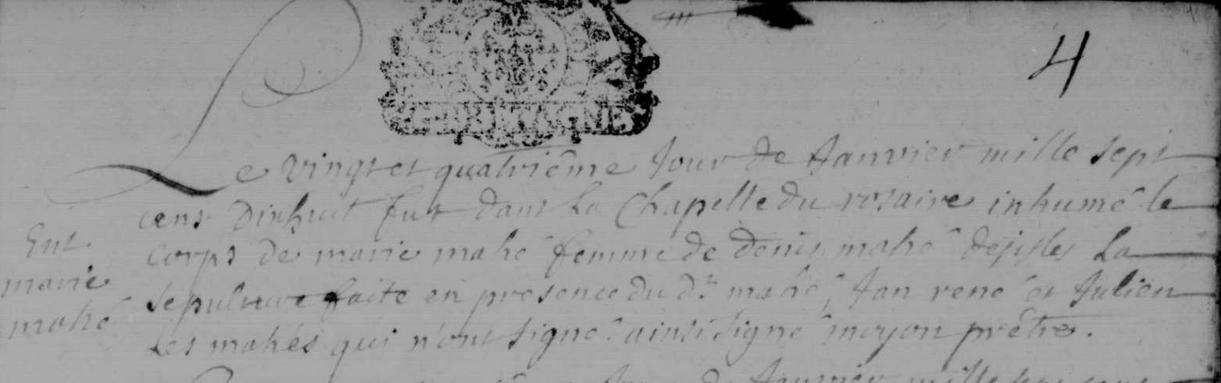 4
Le vingt et quatriême Jour de Janvier mille sept
cens Dixhuit fut dans La Chapelle du rosaire inhumé le
corps de marie mahé femme de denis mahé desisles La
sepulture faite en presence du dt. mahé, Jan rené et Julien
Les mahés qui n'ont signé. ainsi signé moyon prêtre.
Ent.
marie
mahé